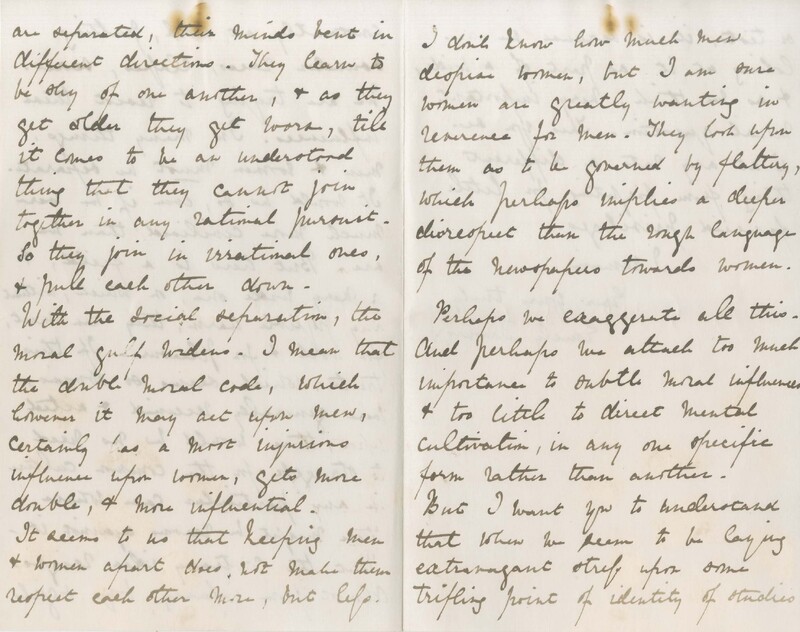 are separated, their minds bent in
different directions. They learn to
be shy of one another, & as they
get older they get worse, till
it comes to be an understood
thing that they cannot join
together in any rational pursuit.
So they join in irrational ones,
& pull each other down.
With the social separation, the
moral gulf widens. I mean that
the double moral code, which
however it may act upon men,
certainly as a most injurious
influence upon women, gets more
double, & more influential.
It seems to us that keeping men
& women apart does not make them
respect each other more, but less.
I don't know how much men
despise women, but I am sure
women are greatly wanting in
reverence for men. They look upon
them as to be governed by flattery,
which perhaps implies a deeper
disrespect than the rough language
of the newspapers towards women.
Perhaps we exaggerate all this.
And perhaps we attach too much
importance to subtle moral influences
& too little to direct mental
cultivation, in any one specific
form rather than another.
But I want you to understand
that when we seem to be laying
extravagant stress upon some
trifling point of identity of studies